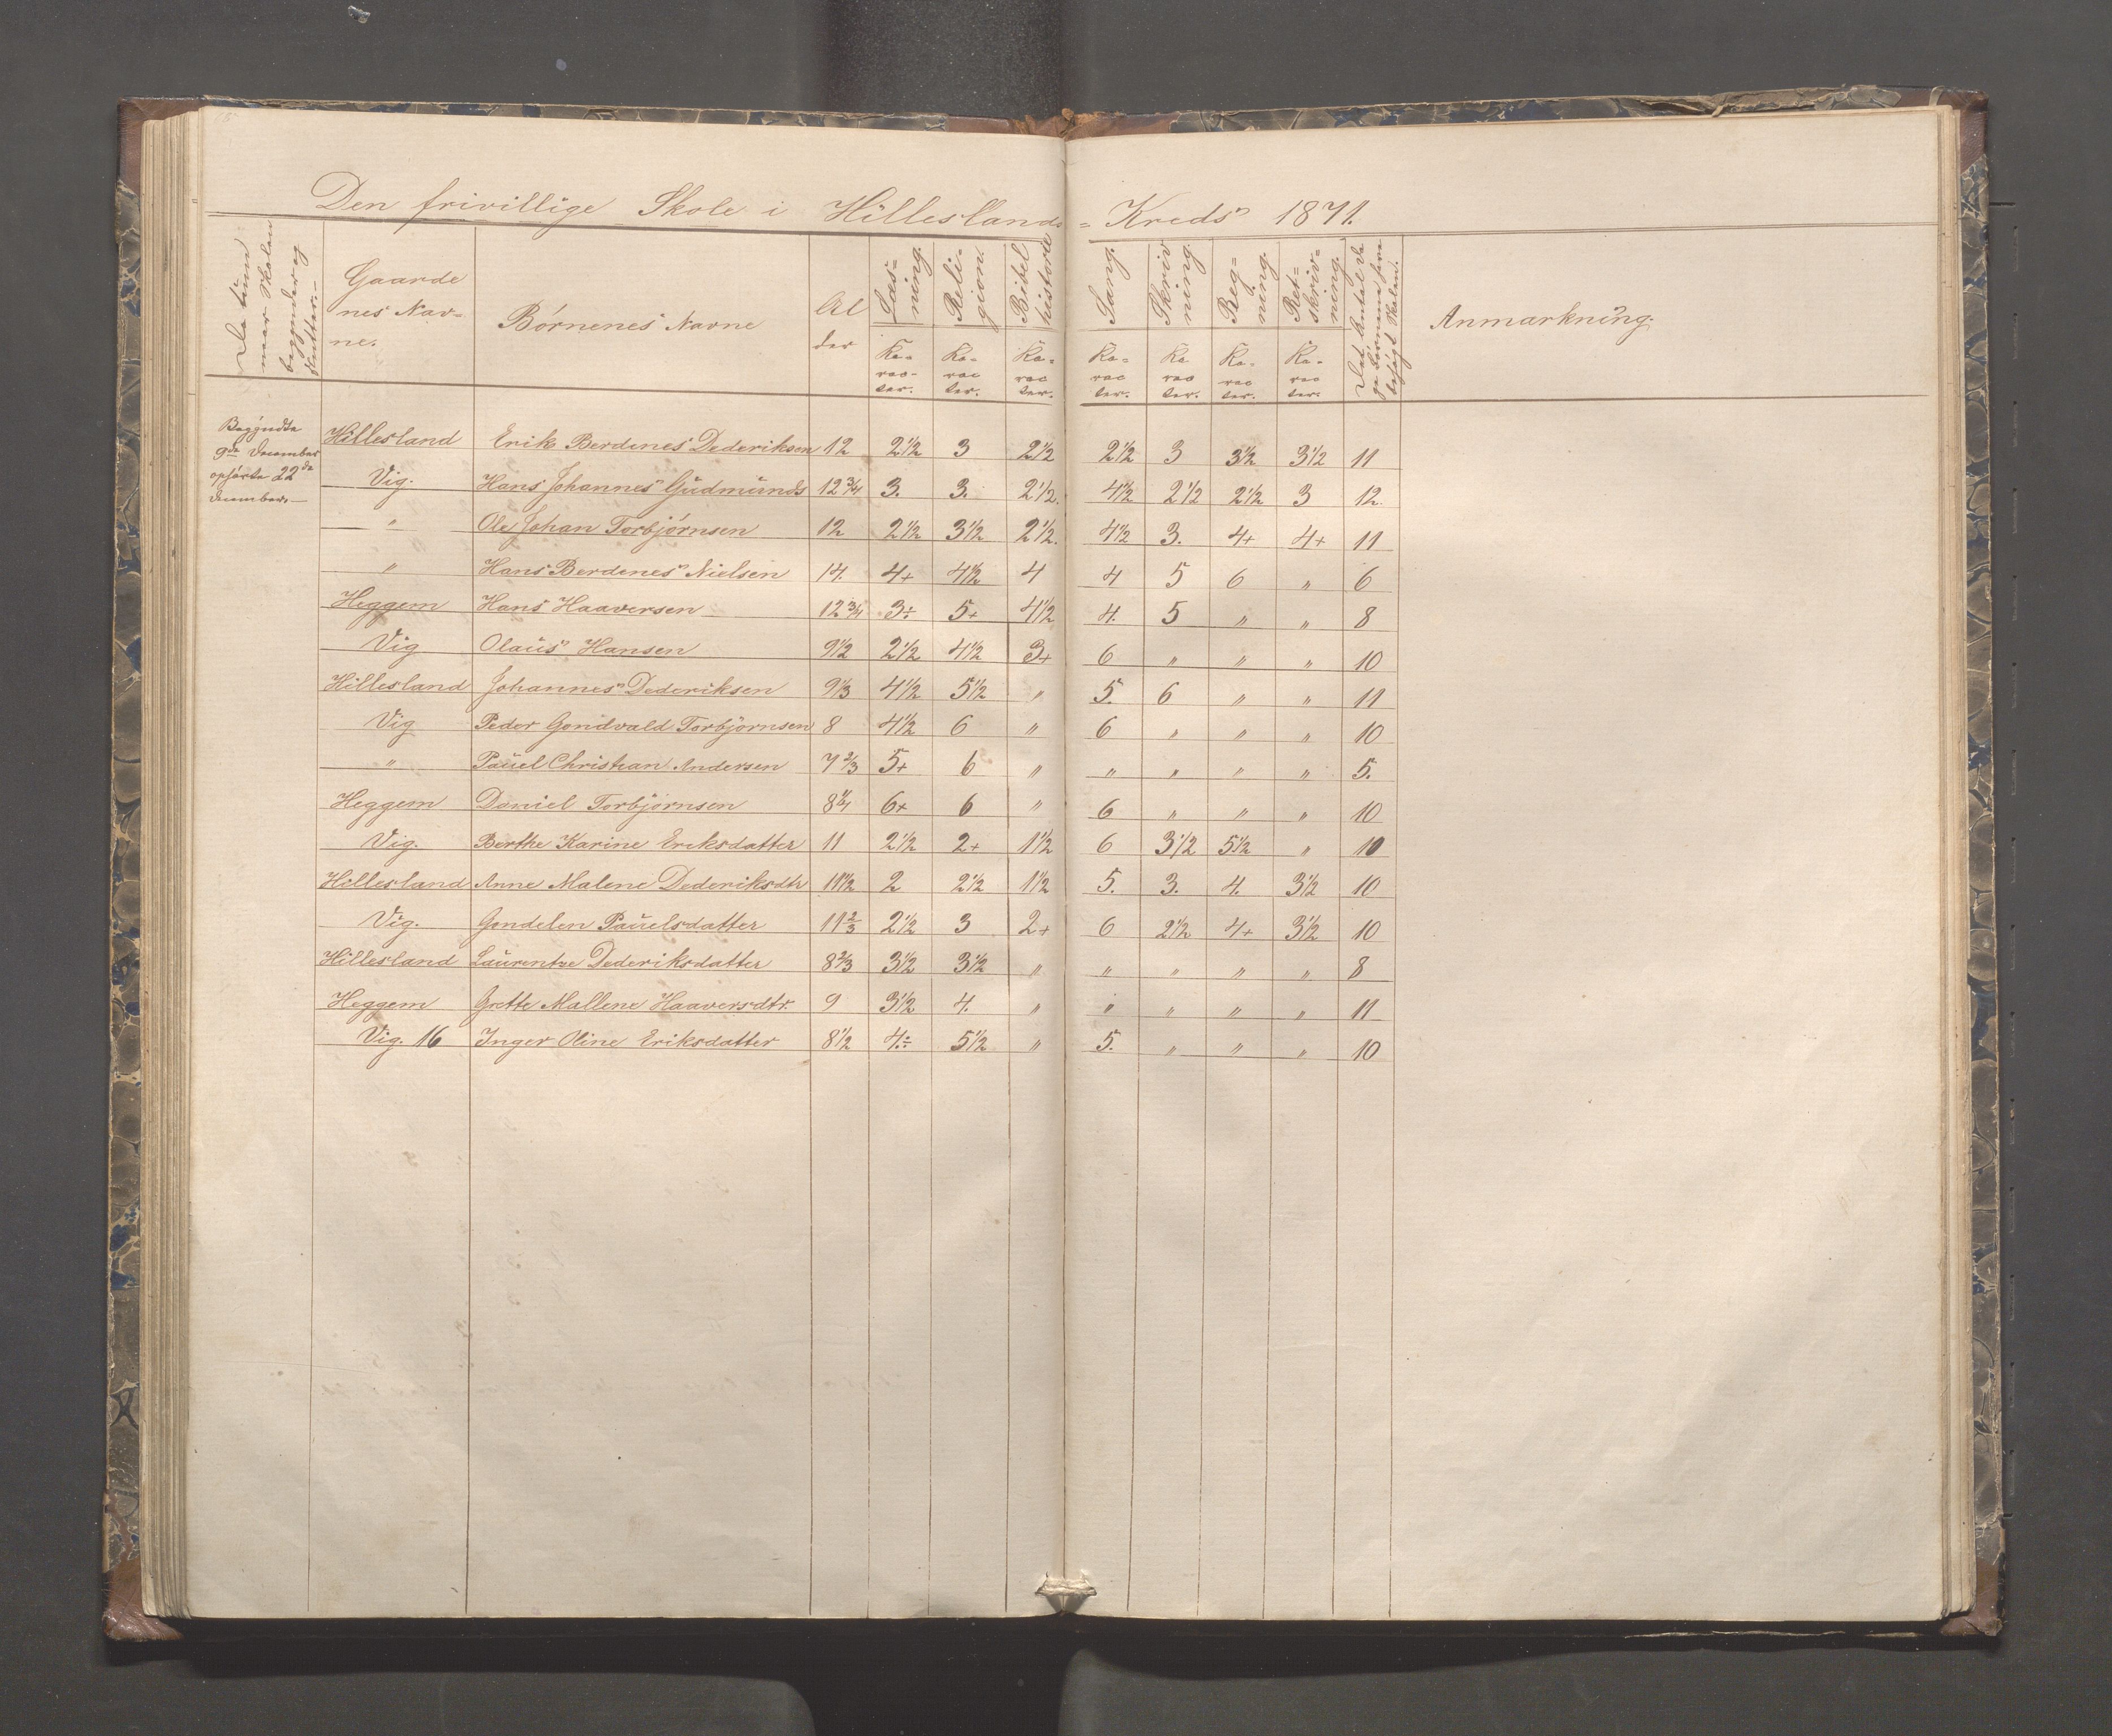 Den frivillige Skole i Hilleslands= Kreds 1871.
Datum naar Skolen begynder og slutter.—
Gaardenes Navne.
Børnenes Navne
Alder
Læsning. Karacter.
Religion. Karacter.
Bibelhistorie Karacter.
Sang. Karacter.
Skrivning. Karacter.
Regning. Karacter.
Retskrivning. Karacter.
Det Antal Dage Børnene have besøgt Skolen.
Anmærkning.
Begyndte
9de December
opførte 22de
December.—
Hillesland Erik Berdines Dederiksen 12 2½ 3 2½ 2½ 3 3½ 3½ 11
Vig. Hans Johannes Gudmunds 12¾ 3. 3. 2½. 4½ 2½ 2½ 3 12.
" Ole Johan Torbjørnsen 12 2½ 3½ 2½. 4½ 3. 4+ 4+ 11
" Hans Berdenes Nielsen 14. 4+ 4½ 4 4 5 6 " 6
Heggem Hans Haaversen 12¾ 3÷ 5+ 4½ 4. 5 " " 8
Vig Olaus Hansen 9½ 2½ 4½ 3+ 6 " " " 10
Hillesland Johannes Dederiksen 9⅓ 4½ 5½ " 5. 6 " " 11
Vig Peder Gondvald Torbjørnsen 8 4½ 6 " 6 " " " 10
" Pauel Christian Andersen 7⅔ 5+ 6 " " " " " 5.
Heggem Daniel Torbjørnsen 8¼ 6+ 6 " 6 " " " 10
Vig. Berthe Karine Eriksdatter 11 2½ 2+ 1½ 6 3½ 5½ " 10
Hillesland Anne Malene Dederiksdtr 11½ 2 2½ 1½ 5. 3. 4. 3½ 10
Vig. Gondelen Pauelsdatter 11⅔ 2½ 3 2+ 6 2½ 4+ 3½ 10
Hillesland Laurentze Dederiksdatter 8⅔ 3½ 3½ " " " " " 8
Heggem Grette Mallene Haaversdtr. 9 3½ 4. " " " " " 11
Vig. 16 Inger Oline Eriksdatter 8½ 4.÷ 5½ " 5. " " " 10